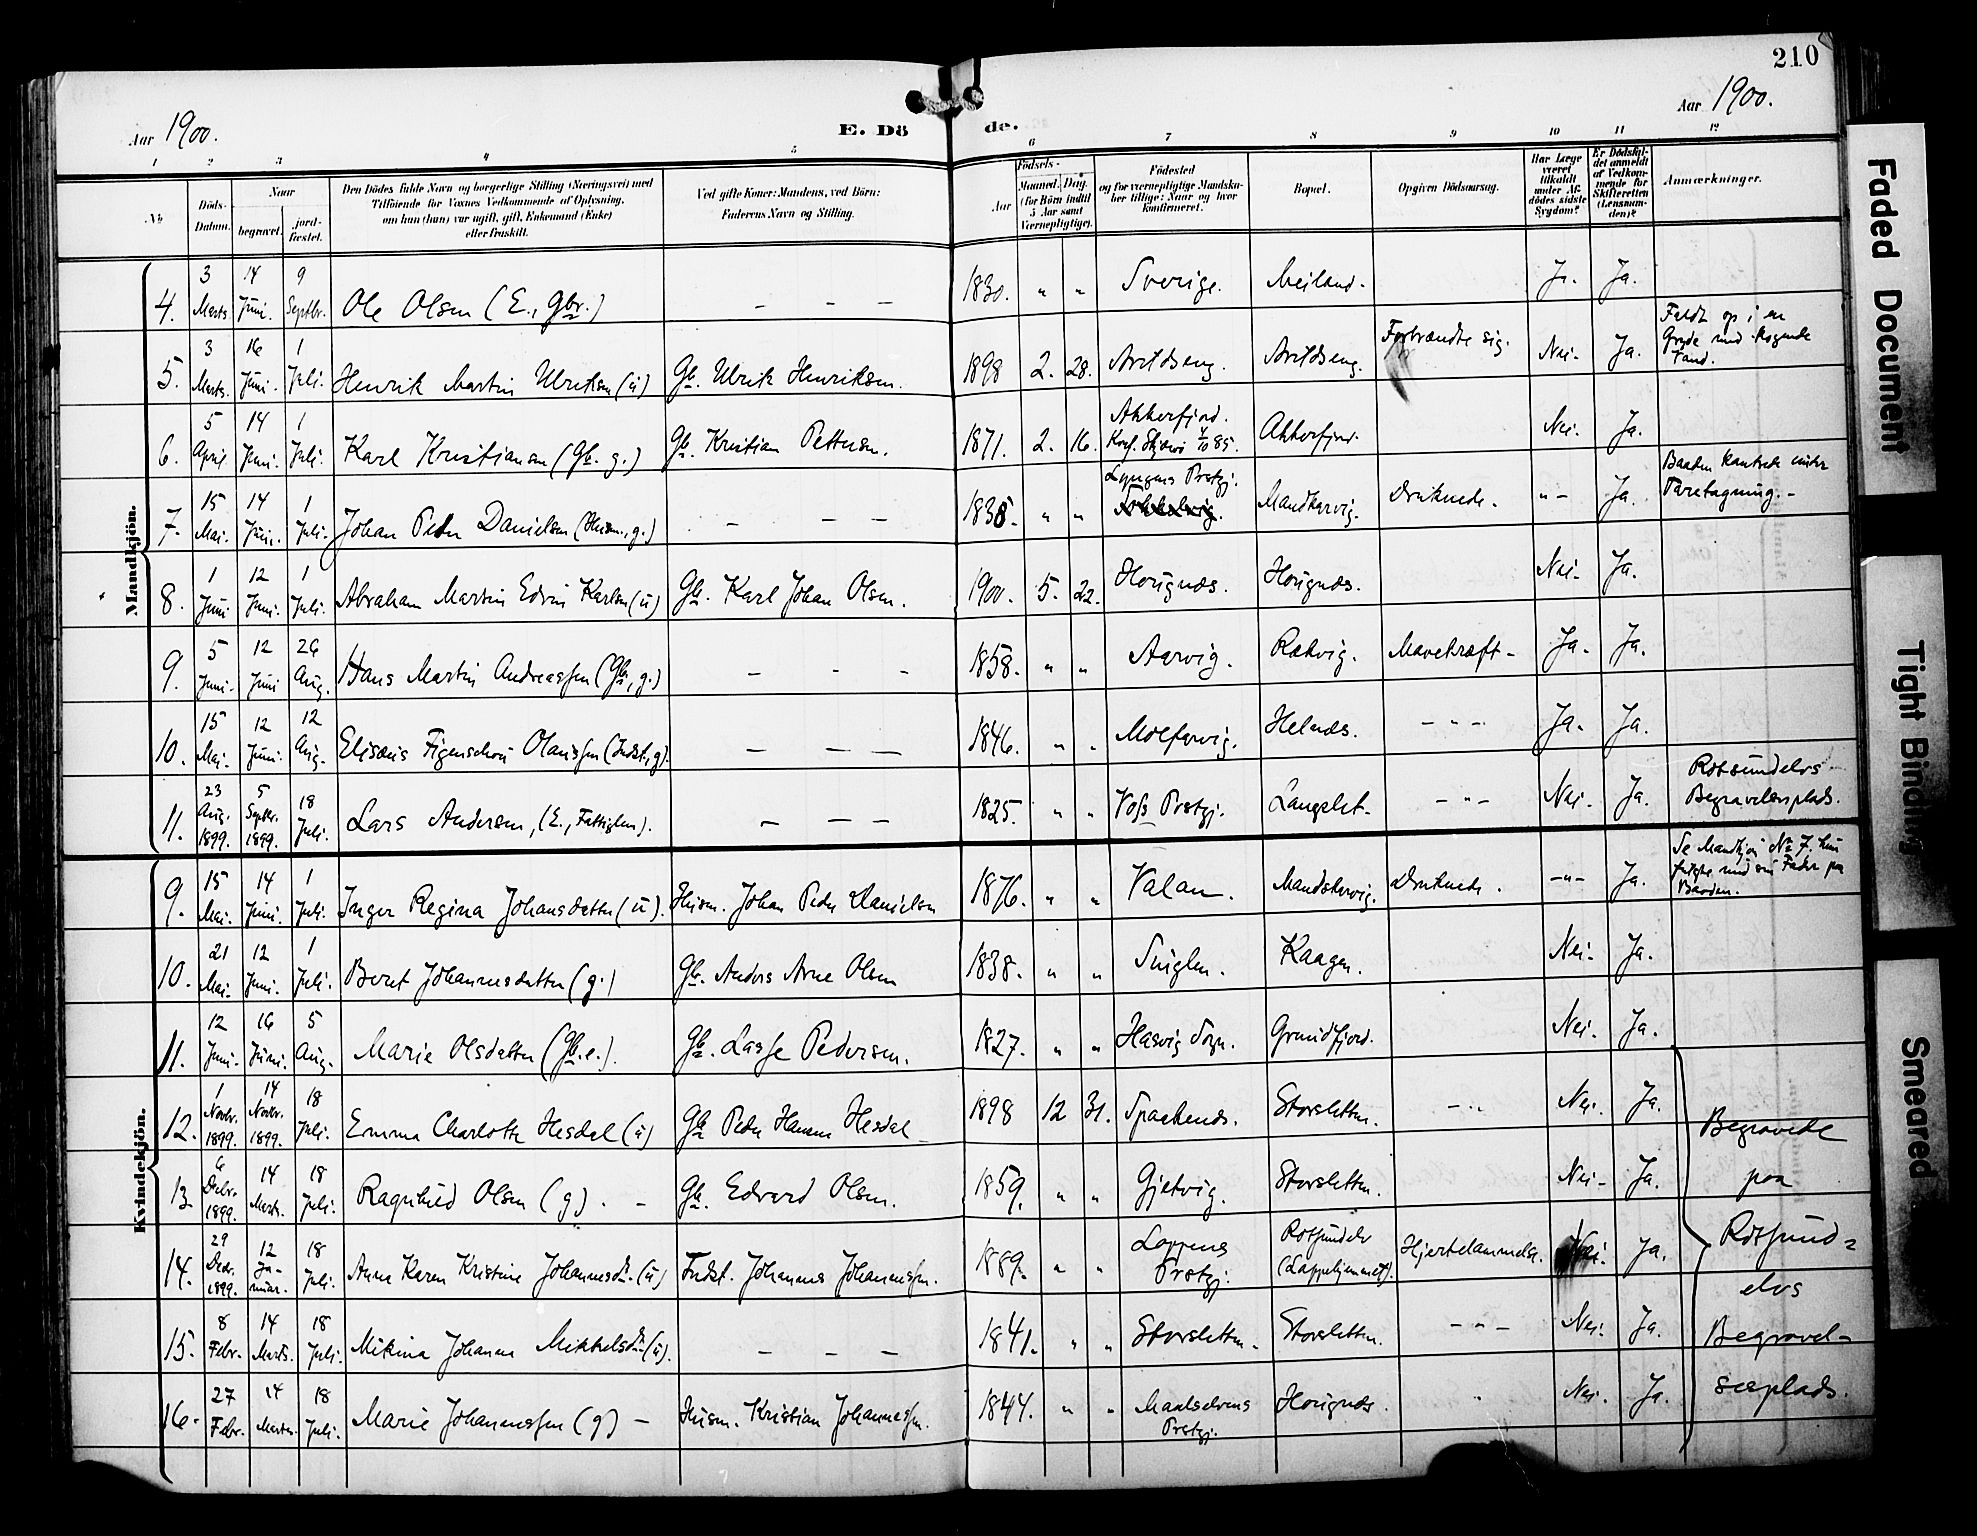 210
Aar 1900.
E. Dö
de.
Aar 1900.
1 2 3 4 5 6 7 8 9 10 11 12
No
Döds-Datum.
Naar
begravet.
jord-fæstet.
Den Dödes fulde Navn og borgerlige Stilling (Næringsvei) med
Tilföiende for Voxnes Vedkommende af Oplysning,
om hun (han) var ugift, gift, Enkemand (Enke)
eller fraskilt.
Ved gifte Koner: Mandens, ved Börn:
Faderens Navn og Stilling.
Födsels-
Aar
Maaned. Dag.
(for Börn indtil
5 Aar samt
Værnepligtige).
Födested
og for værnepligtige Mandska-
ber tillige: Naar og hvor
konfirmeret.
Bopæl.
Opgiven Dödsaarsag.
Har Læge
været
tilkaldt
under Af-
dödes sidste
Sygdom?
Er Dödsfal-
det anmeldt
af Vedkom-
mende for
Skifteretten
(Lensman-
den)?
Anmærkninger.
Mandkjön.
4. 3 Marts. 14 Juni. 9 Septbr. Ole Olsen (E., Gbr.) — — — 1830. " " Sverige. Meiland. Ja. Ja.
5. 3 Marts. 16 Juni. 1 Juli. Henrik Martin Ulriksen (ú) Gb. Ulrik Henriksen. 1898 2. 28. Arildseng. Arildseng. Forbrændte sig. Nei. Ja. Faldt op i en
Gryde med kogende
Vand.
6. 5 April. 14 Juni. 1 Juli. Karl Kristiansen (Gb. g.) Gb. Kristian Pettersen. 1871. 2. 16. Akkerfjord.
Konf. Skjærvö 4/10 85. Akkerfjord. Nei. Ja.
7. 15 Mai. 14 Juni. 1 Juli. Johan Peder Danielsen (Husm., g.) — — — 1838. " " Lyngens Prstgj. Mandskarvig. Druknede. "– Ja. Baaden kantrede under
Taretagning.–
8. 1 Juni 12 Juni. 1 Juli. Abraham Martin Edvin Karlsen (ú) Gb. Karl Johan Olsen. 1900. 5. 22. Hougnæs. Hougnæs. Nei. Ja.
9. 5 Juni. 12 Juni 26 Aug. Hans Martin Andreassen (Gb., g.) — - - 1858. " " Aarvig. Rakvig. Mavekræft – Ja. Ja.
10. 15 Mai. 12 Juni. 12 Aug. Elisæus Figenschou Olaussen (Indst., g). — — — 1846. " " Molfarvig. Helnæs. – " – Ja. Ja.
11. 23 Aug. 1899. 5 Septbr. 1899. 18 Juli. Lars Andersen, (E., Fattiglem). — — — 1825. " " Voss Prstgj. Langslet. – " – Nei. Ja. Rotsundelvs
Begravelsesplads.
Kvindekjön.
9. 15 Mai. 14 Juni. 1 Juli. Inger Regina Johansdatter (ú). Husm. Johan Peder Danielsen 1876. " " Valan. Mandskarvig. Druknede. –"– Ja. Se Mandkjön No 7. hun
fulgte med sin Fader paa
Baaden.
10. 21 Mai. 12 Juni. 1 Juli. Beret Johannesdatter (g.) Gb. Anders Arne Olsen 1838. " " Sniglen. Kaagen. Nei. Ja.
11. 12 Juni. 16 Juni. 5 Aug. Marie Olsdatter (Gb. e.). Gb. Lasse Pedersen. 1827. " " Hasvig Sogn. Grundfjord. Nei. Ja.
12. 1 Novbr. 1899. 14 Novbr. 1899. 18 Juli. Emma Charlotte Hesdal (ú) Gb Peder Hansen Hesdal 1898 12 31. Spaakenæs. Storsletten. – " Nei. Ja.
13. 6 Decbr. 1899. 14 Marts. 18 Juli. Ragnhild Olsen (g). – Gb. Edvard Olsen. 1859. " " Gjetvig. Storsletten. Nei. Ja.
14. 29 Decbr. 1899. 12 Januar. 18 Juli. Anna Karen Kristine Johannesdr. (ú) Indst. Johannes Johannessen. 1889. " " Loppens
Prstgj. Rotsundelv
(Lappehjemmet). Hjertelammelse. Nei. Ja.
15. 8 Febr. 14 Marts. 18 Juli. Mikina Johanna Mikkelsdr. (ú). — — — 1841. " " Storsletten. Storsletten. – " – Nei. Ja.
16. 27 Febr. 14 Marts. 18 Juli. Marie Johannessen (g) – Husm. Kristian Johannessen. 1844. " " Maalselvens
Prstgj. Hougnæs. " Nei. Ja.
Begravede
paa
Rotsund-
elvs
Begravel-
sesplads.
Faded Document
Tight Binding
Smeared